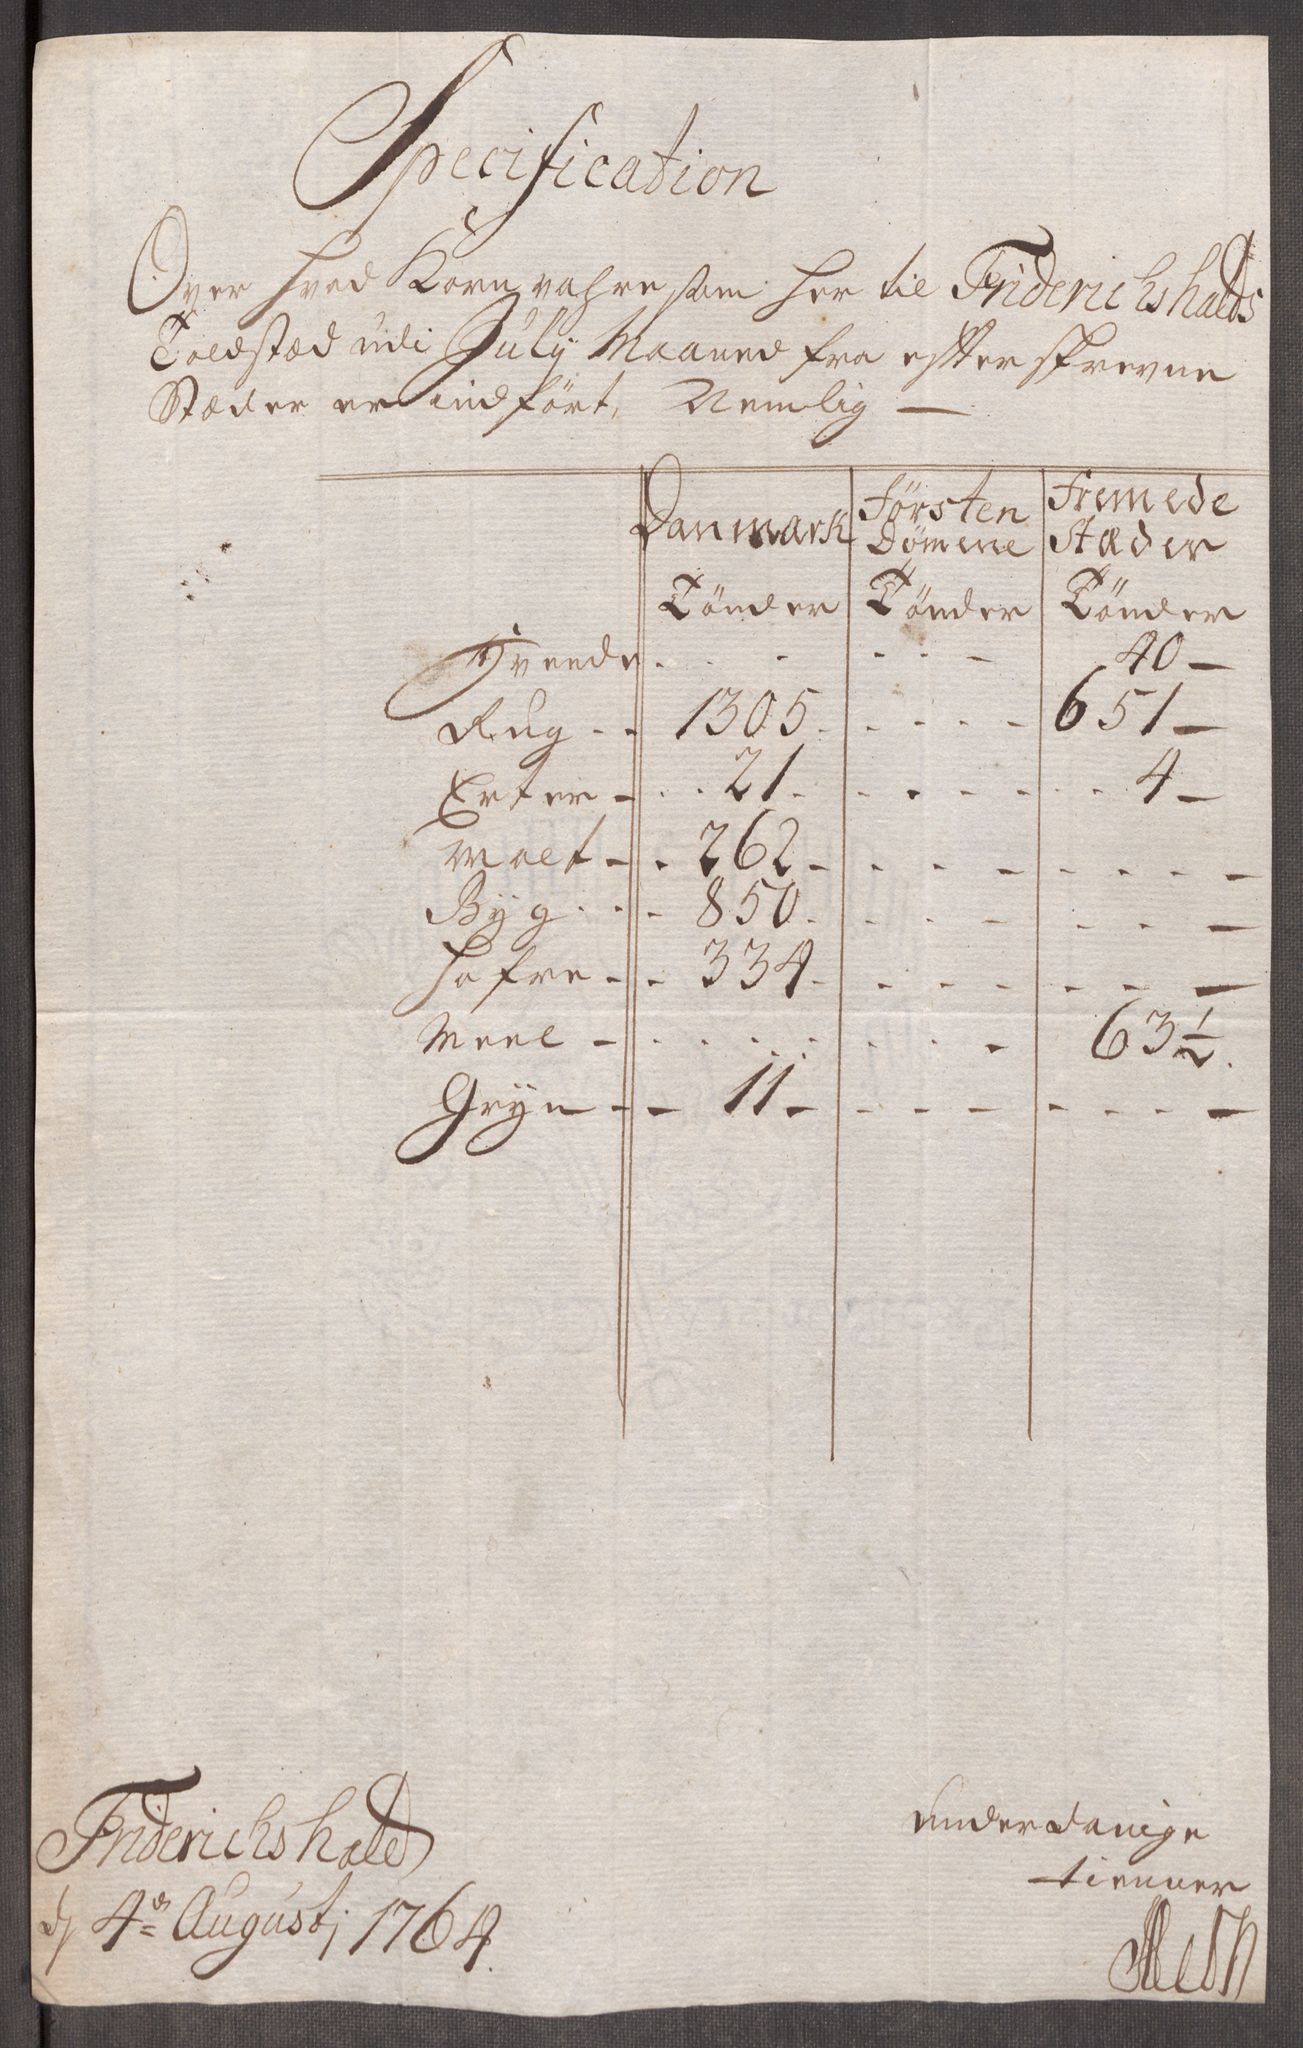 Specification
Over hvad Korn vahre som her til Friderichshalds
Toldstæd udi July Maaned fra efterskrevne
Stæder er indført, Nemlig —
Danmark Førsten Dømene Fremede Stæder
Tønder Tønder Tønder
Hveede . . . . . . 40 —
Rug . . 1305 . . . . . 651 —
Erter — . . 21 . . . . . . . 4 —
Malt — . 262 — . . . — . . . . —
Byg . . . 850 . . . — . . . —
Hafre — . 334 . . . . — . . . —
Meel — . . . . . . . . — 63 1/2 .
Gryn — — 11 — . . . — . . . . —
Friderichshald
d 4de August, 1764.
underdanige
tienner